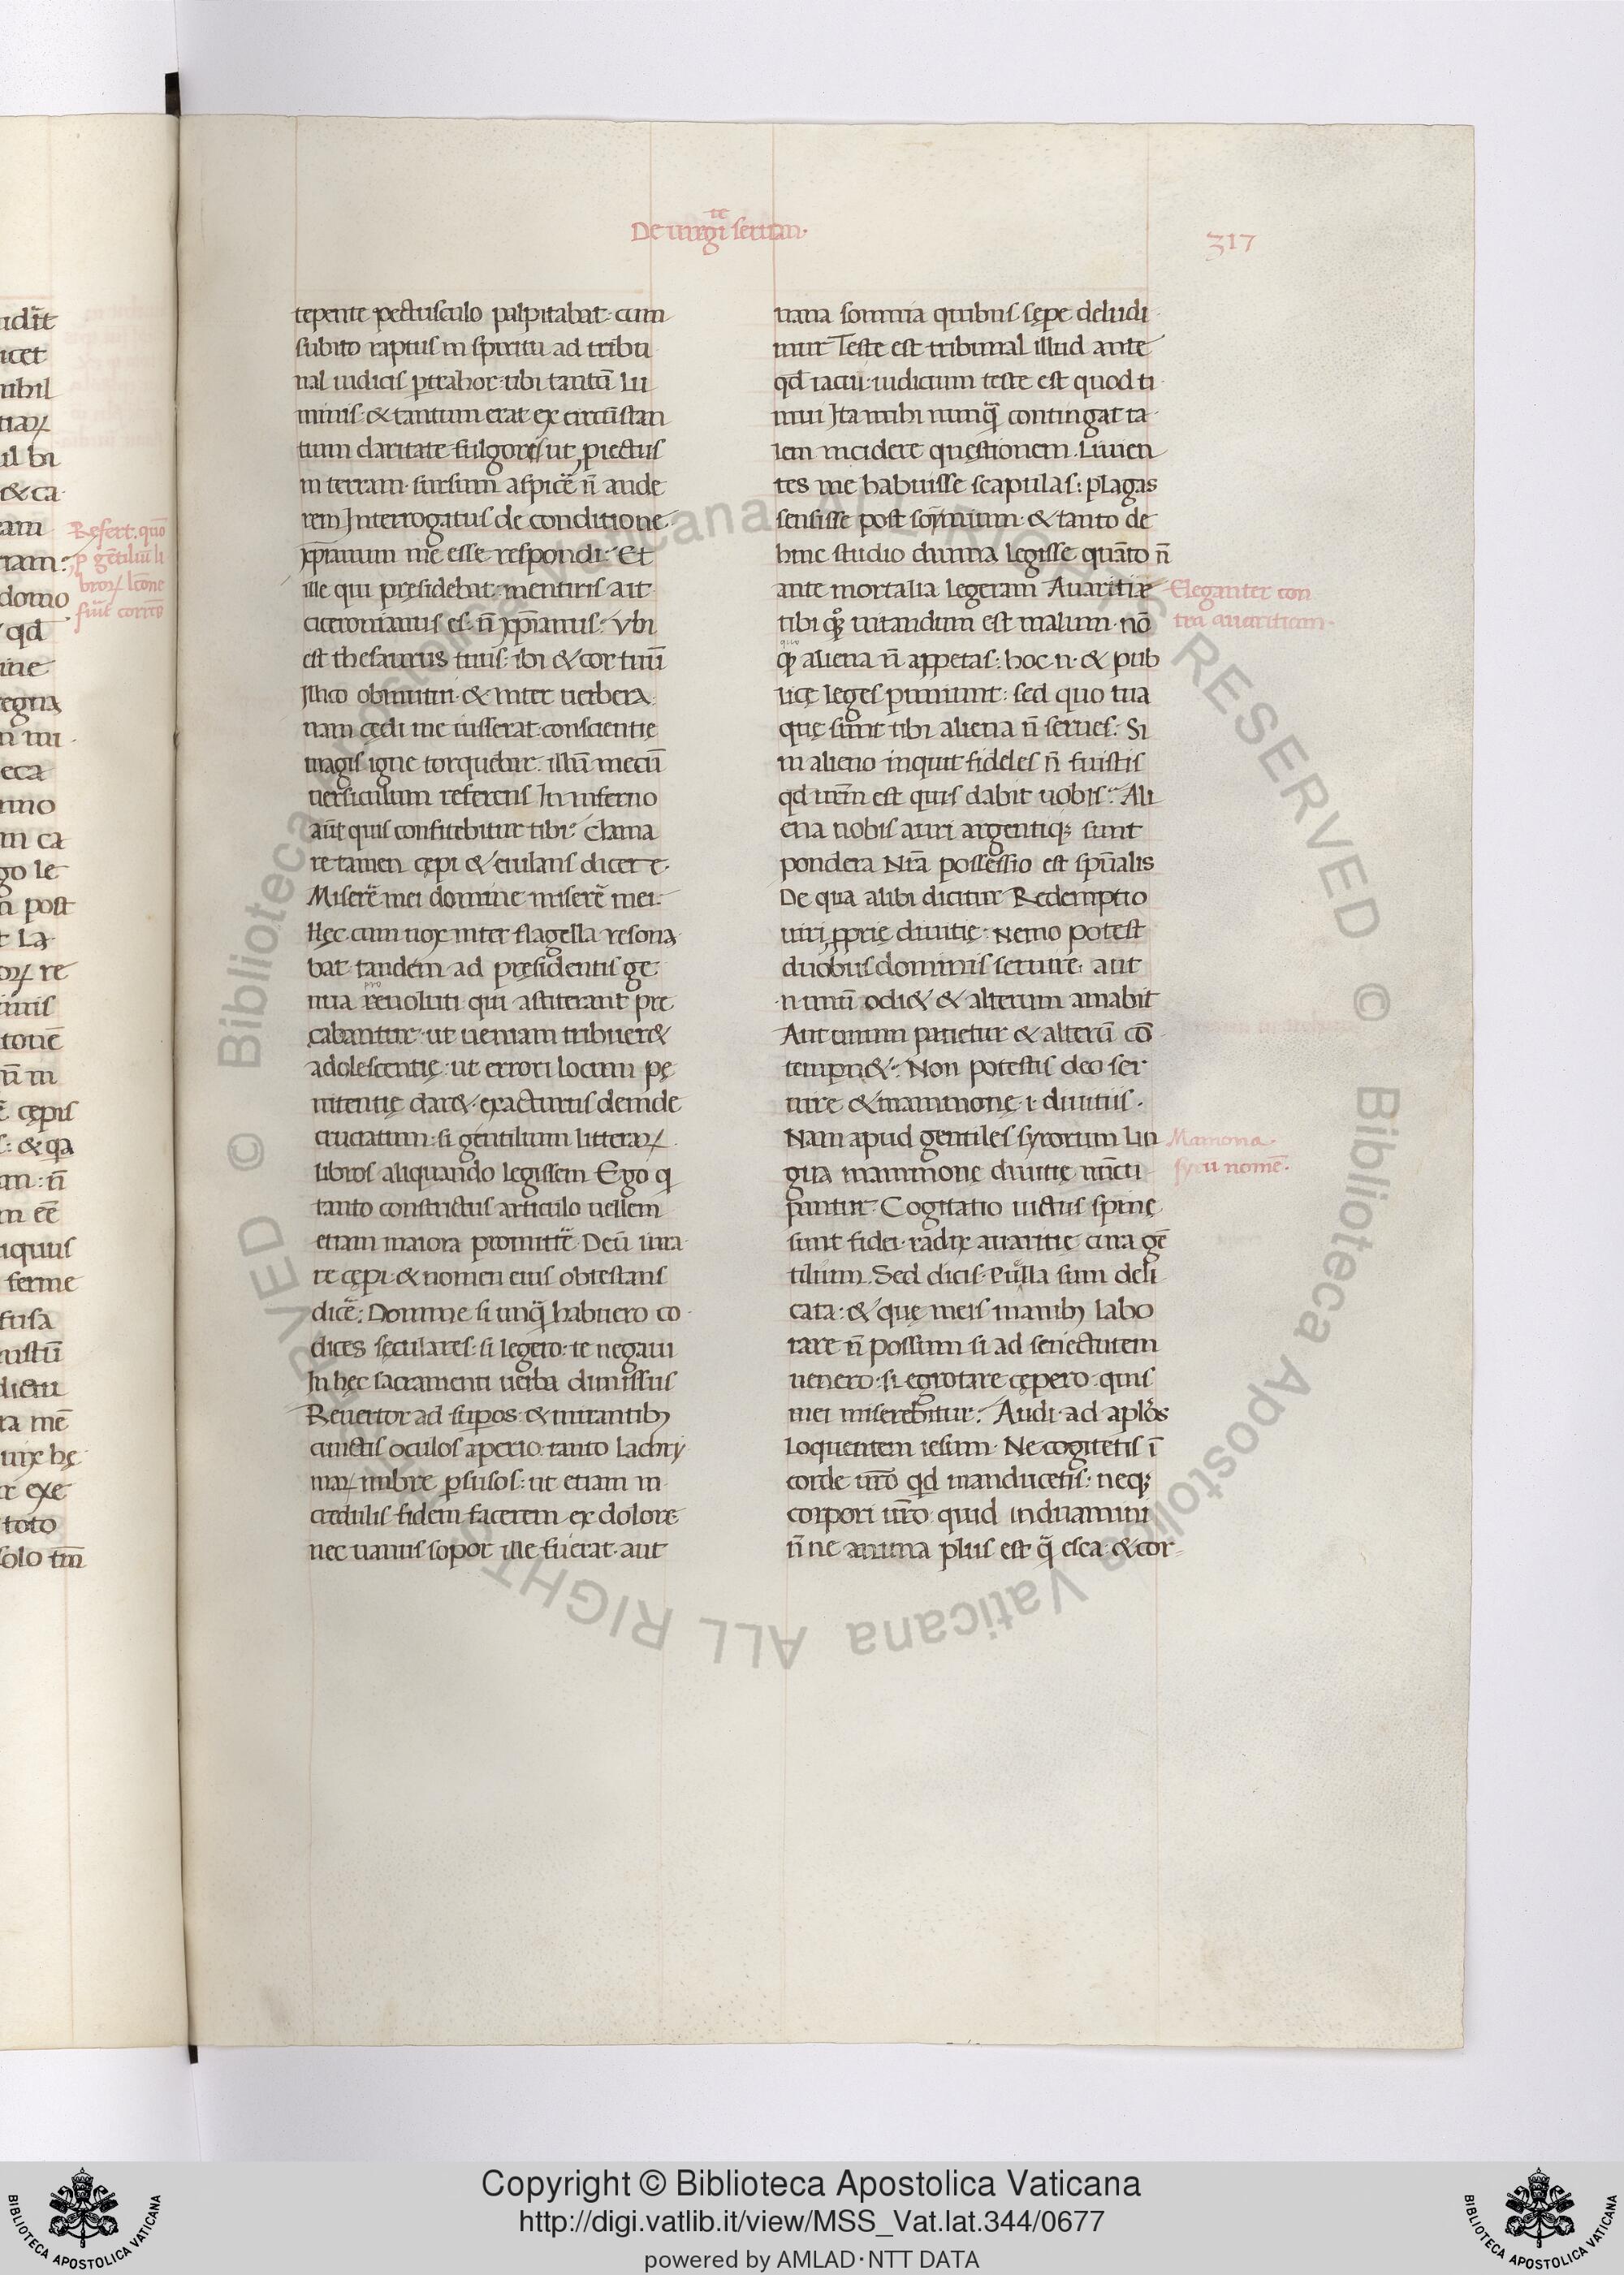 De virgi servan.
te
317
tepente pectusculo palpitabat. cum
subito raptus in spiritu ad tribu
nal iudicis ptrahor. ubi tantū lu
minis. & tantum erat ex circūstan
tium claritate fulgoris ut piectus
in terram. sursum aspicē n̄ aude
rem Interrogatus de conditione.
xp̄ianum me esse respondi. Et
ille qui presidebat. mentiris ait.
ciceronianus es. n̄ xp̄ianus. Vbi
est thesaurus tuus. ibi & cor tuū
Illico obmutui. & inter verbera.
nam cędi me iusserat. conscientię
magis igne torquebar. illū mecū
versiculum referens In inferno
aūt quis confitebitur tibi. Clama
re tamen cępi & eiulans dicere.
Miserē mei domine miserē mei.
Hęc cum vox inter flagella resona
bat. tandem ad pręsidentis ge
pro
nua revoluti qui astiterant pre
cabantur. ut veniam tribuer&
adolescentię. ut errori locum pę
nitentię dar&. exacturus deinde
cruciatum. si gentilium litteraꝝ
libros aliquando legissem Ego q
tanto constrictus articulo vellem
etiam maiora promittē. Deū iura
re cępi. & nomen eius obtestans
dicē. Domine si unq̄ habuero co
dices sęculares. si legero. te negavi
In hęc sacramenti verba dimissus
Revertor ad supos. & mirantib;
cunctis oculos aperio. tanto lachry
maꝝ imbre pfusos. ut etiam in
credulis fidem facerem ex dolore.
nec vanus sopor ille fuerat. aut
vana somnia quibus sępe deludi
mur Teste est tribunal illud ante
qd iacui. iudicium teste est quod ti
mui Ita mihi nunq̄ contingat ta
lem incidere quęstionem. Liven
tes me habuisse scapulas. plagas
sensisse post somnium. & tanto de
hinc studio divina legisse quāto n̄
ante mortalia legeram Avaritiæ
tibi q; vitandum est malum. nō
quo
q; aliena n̄ appetas. hoc .n. & pub
licę leges puniunt. sed quo tua
quę sunt tibi aliena n̄ serves. Si
in alieno inquit fideles n̄ fuistis
qd vr̄m est quis dabit vobis. Ali
ena nobis auri argentiq; sunt
pondera Nr̄a possessio est spūalis
De qua alibi dicitur Redemptio
viri pprię divitię. Nemo potest
duobus dominis servire. aut
.n. unū odi& & alterum amabit
Aut unum patietur & alterū cō
tempn&. Non potestis deo ser
vire & mammonę .i. divitiis.
Nam apud gentiles syrorum lin
gua mammone divitię nūcu
pantur. Cogitatio victus spinę
sunt fidei. radix avaritię cura gē
tilium. Sed dicis. Puella sum deli
cata. & quę meis manib; labo
rare n̄ possum si ad senectutem
venero. si egrotare cępero. quis
mei miserebitur. Audi ad aplōs
loquentem iesum. Ne cogitetis ī
corde vrō qd manducetis. neq;
corpori vrō quid induamini
n̄ne anima plus est q̄ esca. & cor-
Eleganter con
tra avaritiam.
Mamona.
syru nomē.
Refert. quō
p gētiliū li
broꝝ lc̄one
fūt correp
Copyright © Biblioteca Apostolica Vaticana
http://digi.vatlib.it/view/MSS_Vat.lat.344/0677
powered by AMLAD·NTT DATA
BIBLIOTECA APOSTOLICA VATICANA
BIBLIOTECA APOSTOLICA VATICANA
© Biblioteca Apostolica Vaticana ALL RIGHTS RESERVED © Biblioteca Apostolica Vaticana ALL RIGHTS RESERVED